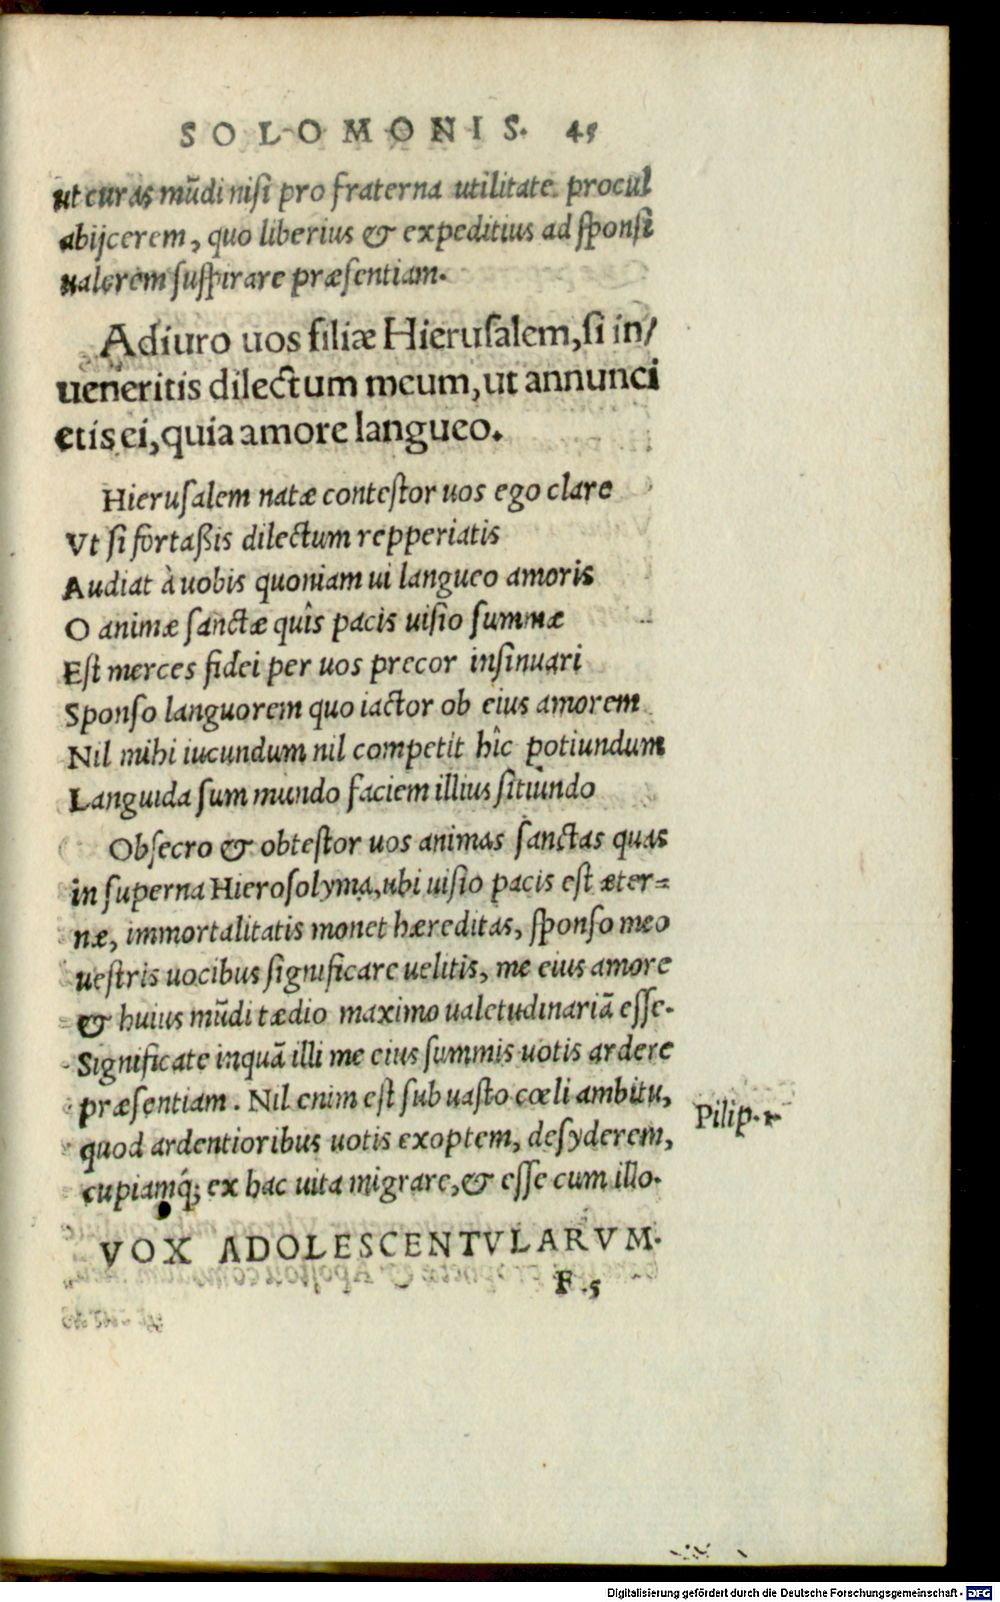 SOLOMONIS. 45
ut curas mũdi nisi pro fraterna utilitate procul
abijcerem, quo liberius & expeditius ad sponsi
ualerem suspirare præsentiam.
Adiuro uos filiæ Hierusalem, si in/
ueneritis dilectum meum, ut annunci
etis ei, quia amore langueo.
Hierusalem natæ contestor uos ego clare
Vt si fortaßis dilectum repperiatis
Audiat à uobis quoniam ui langueo amoris
O animæ sanctæ quîs pacis uisio summæ
Est merces fidei per uos precor insinuari
Sponso languorem quo iactor ob eius amorem
Nil mihi iucundum nil competit hîc potiundum
Languida sum mundo faciem illius sitiundo
Obsecro & obtestor uos animas sanctas quas
in superna Hierosolyma, ubi uisio pacis est æter=
næ, immortalitatis monet hæreditas, sponso meo
uestris uocibus significare uelitis, me eius amore
& huius mũdi tædio maximo ualetudinariã esse.
Significate inquã illi me eius summis uotis ardere
præsentiam. Nil enim est sub uasto cœli ambitu,
quod ardentioribus uotis exoptem, desyderem,
cupiamq́; ex hac uita migrare, & esse cum illo.
Pilip. 1
VOX ADOLESCENTVLARVM.
F.5
Digitalisierung gefördert durch die Deutsche Forschungsgemeinschaft - DFG